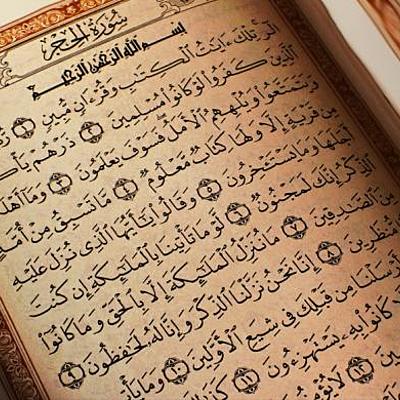 سُورَةُ الحِجْرِ
بِسْمِ اللَّهِ الرَّحْمَٰنِ الرَّحِيمِ
الٓر تِلْكَ ءَايَٰتُ الْكِتَٰبِ وَقُرْءَانٍ مُّبِينٍ ١
الَّذِينَ كَفَرُوا لَوْ كَانُوا مُسْلِمِينَ ٢ ذَرْهُمْ
وَيَتَمَتَّعُوا وَيُلْهِهِمُ الْأَمَلُ فَسَوْفَ يَعْلَمُونَ ٣ وَمَا
مِن قَرْيَةٍ إِلَّا وَلَهَا كِتَابٌ مَّعْلُومٌ ٤ مَّا تَسْبِقُ مِنْ
أَجَلَهَا وَمَا يَسْتَـْٔخِرُونَ ٥ وَقَالُوا يَٰٓأَيُّهَا الَّذِي نُزِّلَ عَلَيْهِ
الذِّكْرُ إِنَّكَ لَمَجْنُونٌ ٦ لَّوْ مَا تَأْتِينَا بِالْمَلَٰٓئِكَةِ إِن كُنتَ
مِنَ الصَّٰدِقِينَ ٧ مَا نُنَزِّلُ الْمَلَٰٓئِكَةَ إِلَّا بِالْحَقِّ وَمَا كَانُوٓا
مُّنظَرِينَ ٨ إِنَّا نَحْنُ نَزَّلْنَا الذِّكْرَ وَإِنَّا لَهُ لَحَٰفِظُونَ ٩
أَرْسَلْنَا مِن قَبْلِكَ فِي شِيَعِ الْأَوَّلِينَ ١٠ وَمَا
كَانُوا بِهِ يَسْتَهْزِءُونَ ١١
لَا يُؤْمِنُونَ ١٢